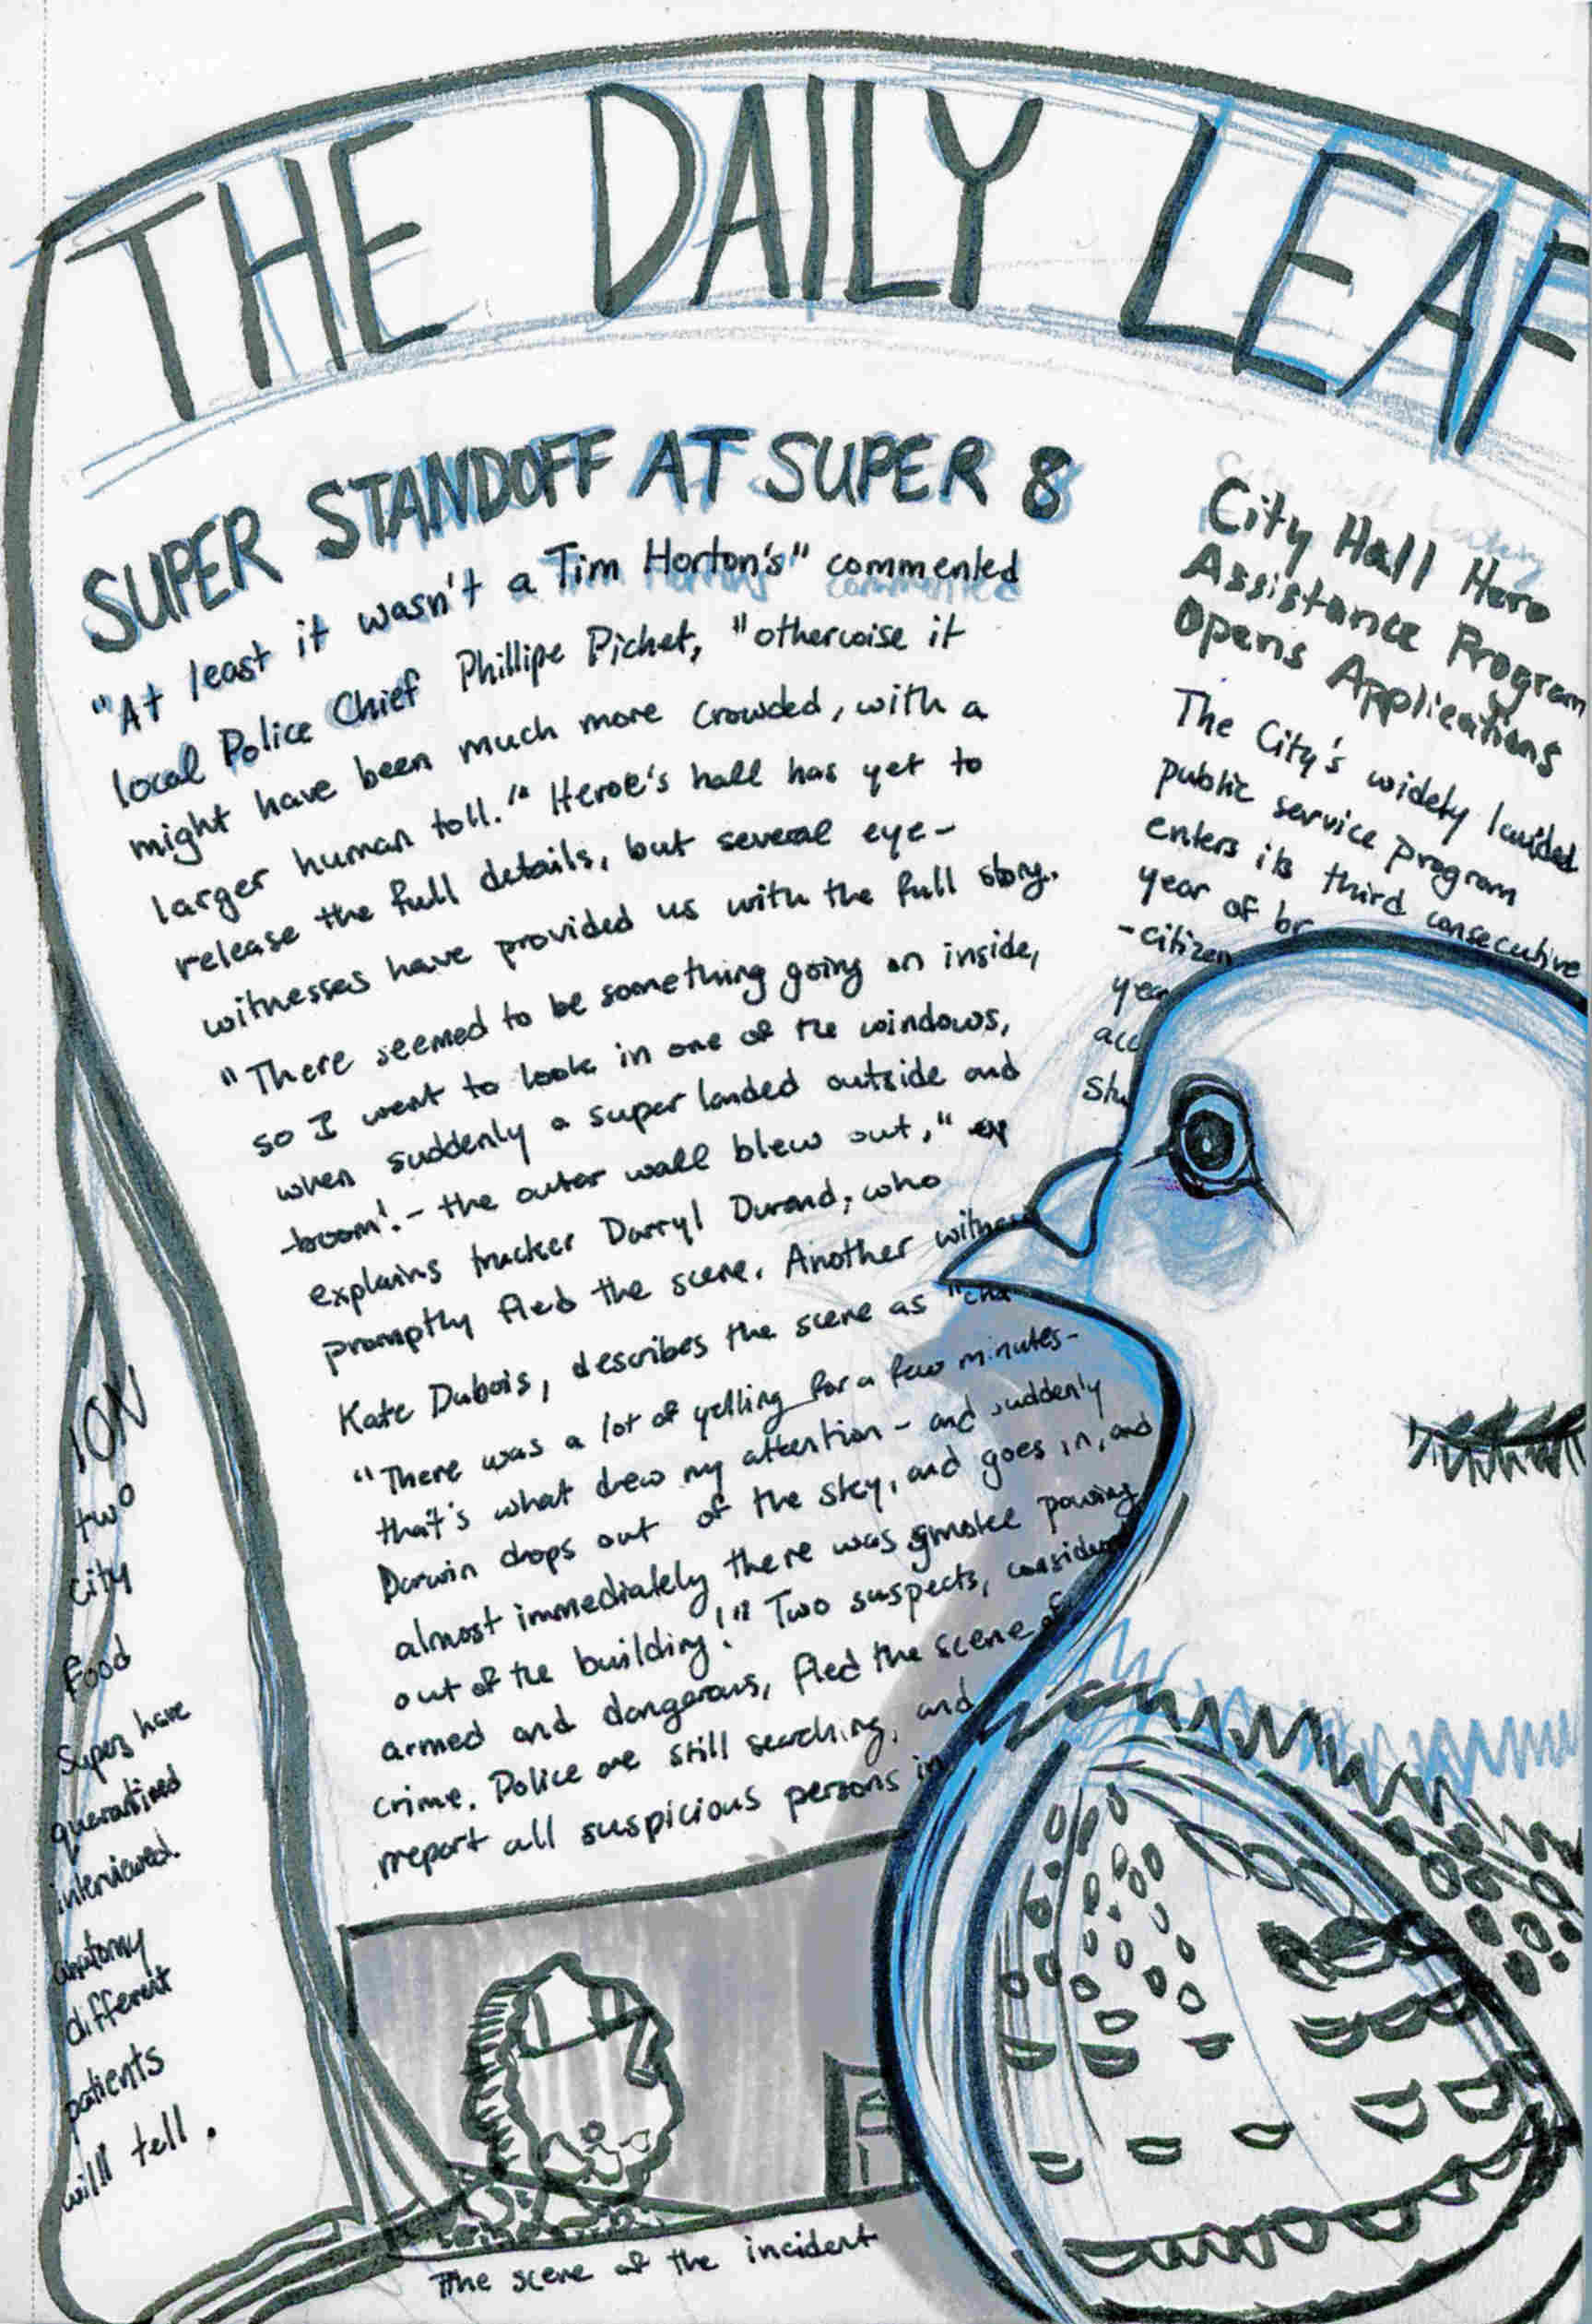 THE DAILY LEAF
SUPER STANDOFF AT SUPER 8
"At least it wasn't a Tim Horton's" commented
local Police Chief Phillipe Pichet, "otherwise it
might have been much more crowded, with a
larger human toll." Heroe's hall has yet to
release the full details, but several eye-
witnesses have provided us with the full story.
"There seemed to be something going on inside,
so I went to look in one of the windows,
when suddenly a super landed outside and
-boom!- the outer wall blew out," ex
explains trucker Darryl Durand, who
promptly fled the scene. Another witness
Kate Dubois, describes the scene as "cha
"There was a lot of yelling for a few minutes-
that's what drew my attention - and suddenly
Darwin drops out of the sky, and goes in, and
almost immediately there was smoke pouring
out of the building!" Two suspects, considered
armed and dangerous, fled the scene of
crime. Police are still searching, and
report all suspicious persons in
The scene of the incident
City Hall Hero
Assistance Program
Opens Applications
The City's widely lauded
public service program
enters its third consecutive
year of br
-citizen
yea
acc
stu
ION
two
city
Food
Supers have
quarantined
interviewed.
anatomy
different
patients
will tell.